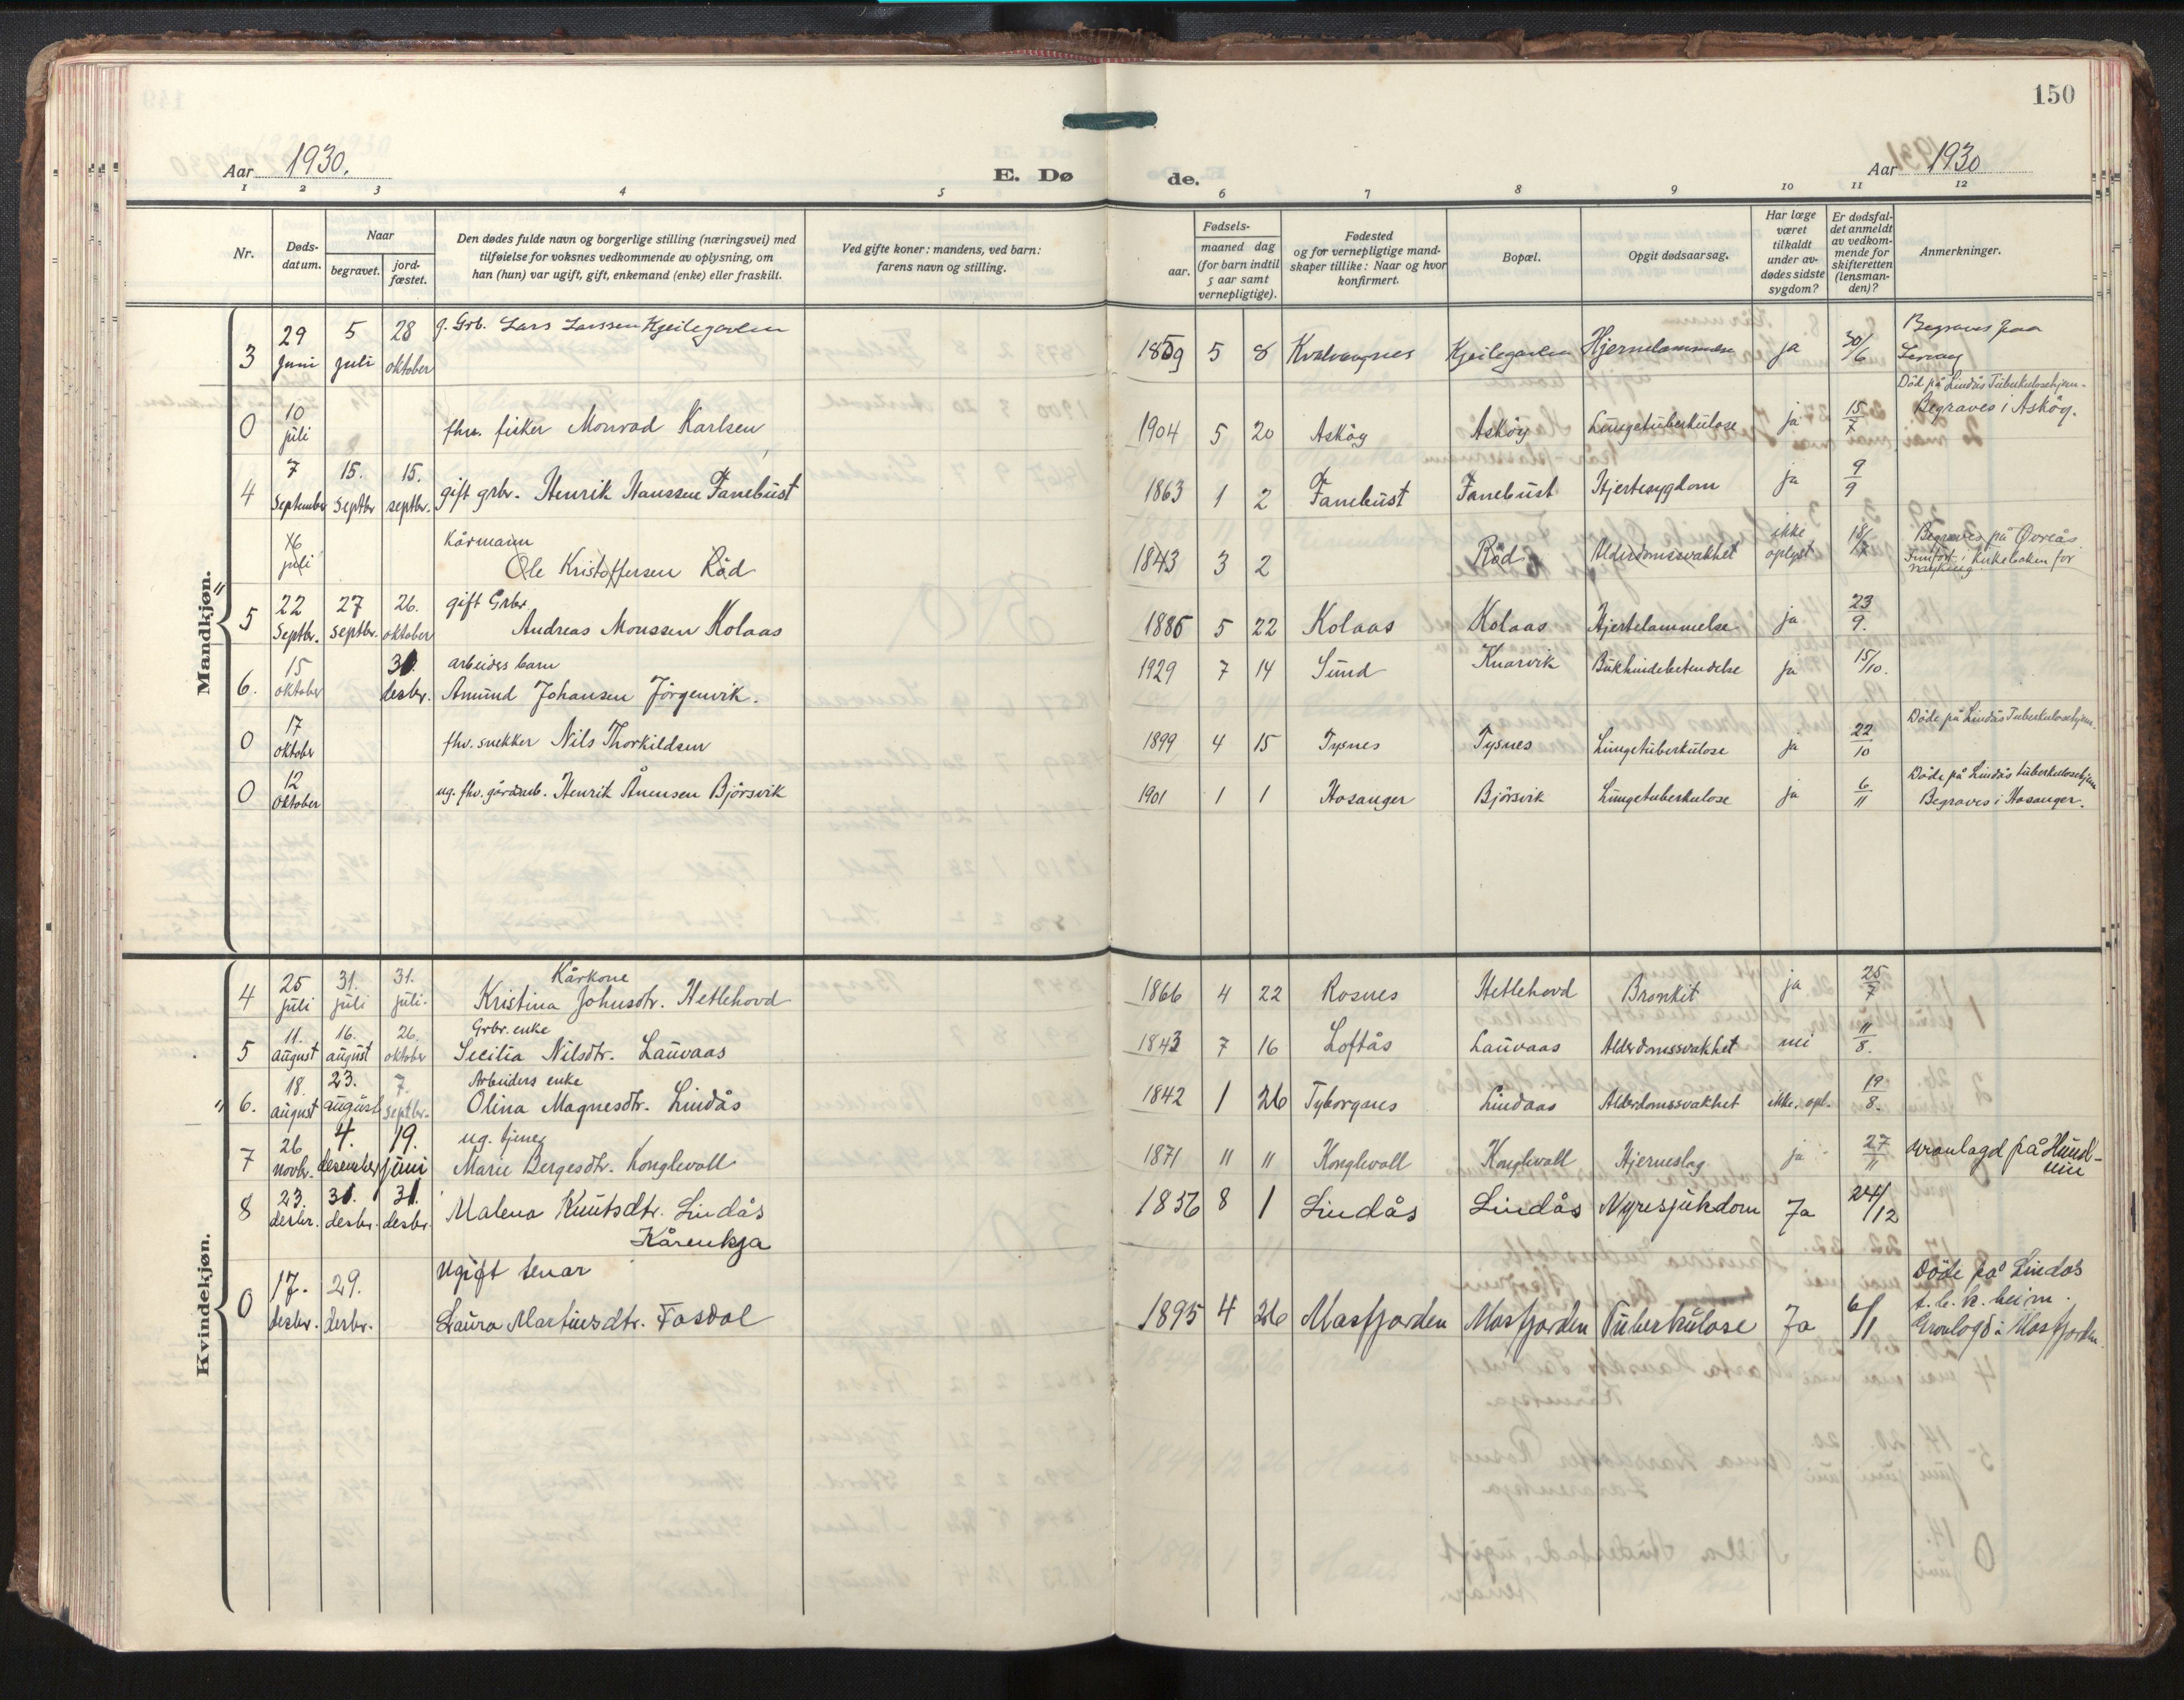 150
Aar 1930.
E. Dø
de.
Aar 1930
1 2 3 4 5 6 7 8 9 10 11 12
Nr.
Døds-
datum.
Naar
begravet.
jord-
fæstet.
Den dødes fulde navn og borgerlige stilling (næringsvei) med
tilføielse for voksnes vedkommende av oplysning, om
han (hun) var ugift, gift, enkemand (enke) eller fraskilt.
Ved gifte koner: mandens, ved barn:
farens navn og stilling.
Fødsels-
aar.
maaned dag
(for barn indtil
5 aar samt
vernepligtige).
Fødested
og for vernepligtige mand-
skaper tillike: Naar og hvor
konfirmert.
Bopæl.
Opgit dødsaarsag.
Har læge
været
tilkaldt
under av-
dødes sidste
sygdom?
Er dødsfal-
det anmeldt
av vedkom-
mende for
skifteretten
(lensman-
den)?
Anmerkninger.
Mandkjøn.
3 29 Juni 5 juli 28 oktober g. Grb. Lars Larssen Kjeilegavlen 1859 5 8 Kvalvaagnes Kjeilegavlen Hjernelammelse ja 30/6 Begraves paa
0 10 juli fhv. fisker Monrad Karlsen 1904 5 20 Askøy Askøy Lungetuberkulose ja 15/7 Död på Lindås Tuberkulosehjem.
Begraves i Askøy.
4 7 September 15. Septbr 15. septbr. gift grbr. Henrik Hanssen Fanebust 1863 1 2 Fanebust Fanebust Hjertesygdom ja 9/9
16 juli Kårmann
Ole Kristoffersen Röd 1843 3 2 Röd Alderdomssvakhet ikke oplyst 18/7 Begraves på Øvreås
i kirkeboken for
5 22 Septbr. 27 septbr. 26. oktober gift Grbr.
Andreas Monssen Kolaas 1885 5 22 Kolaas Kolaas Hjertelammelse. ja 23/9.
6. 15 oktober 31. desbr. arbeiders barn
Amund Johansen Jörgenvik. 1929 7 14 Sund Knarvik Bukhindebetendelse ja 15/10.
0 17 oktober fhv. snekker Nils Thorkildsen 1899 4 15 Tysnes Tysnes Lungetuberkulose ja 22/10 Döde på Lindås Tuberkulosehjem.
0 12 oktober ug. fhv. gårdarb. Henrik Ånensen Björsvik 1901 1 1 Hosanger Björsvik Lungetuberkulose ja 6/11 Döde på Lindås tuberkulosehjem
Begraves i Hosanger.
Kvindekjøn.
4 25 juli 31. juli 31. juli. Kårkone
Kristina Johnsdtr. Hetlehovd 1866 4 22 Rosnes Hetlehovd Bronkit ja 25/7
5 11. august 16. august 26. oktober Grbr. enke
Secilia Nilsdtr. Lauvaas 1843 7 16 Loftås Lauvaas Alderdomssvakhet nei 11/8.
6. 18. august 23. august 7. septbr. Arbeiders enke
Olina Magnesdtr. Lindås 1842 1 26 Tyborgnes Lindaas Alderdomssvakhet ikke. opl. 19/8.
7 26 novbr. 4. desember 19. juni ug. tjener
Marie Bergesdtr. Konglevoll 1871 11 11 Konglevoll Konglevoll Hjerneslag ja 27/11 gravlagd på Hund-
8 23. desbr. 31. desbr. 31. desbr. Malena Knutsdtr. Lindås
Kårenkja 1836 8 1 Lindås Lindås Nyresjukdom Ja 24/12
0 17. desbr. 29. desbr. Ugift tenar
Laura Martinsdtr. Fosdal 1895 4 26 Masfjorden Masfjorden Tuberkulose Ja 6/1 Döde på Lindås
t.b.k. heim.
Gravlagd i Masfjorden.